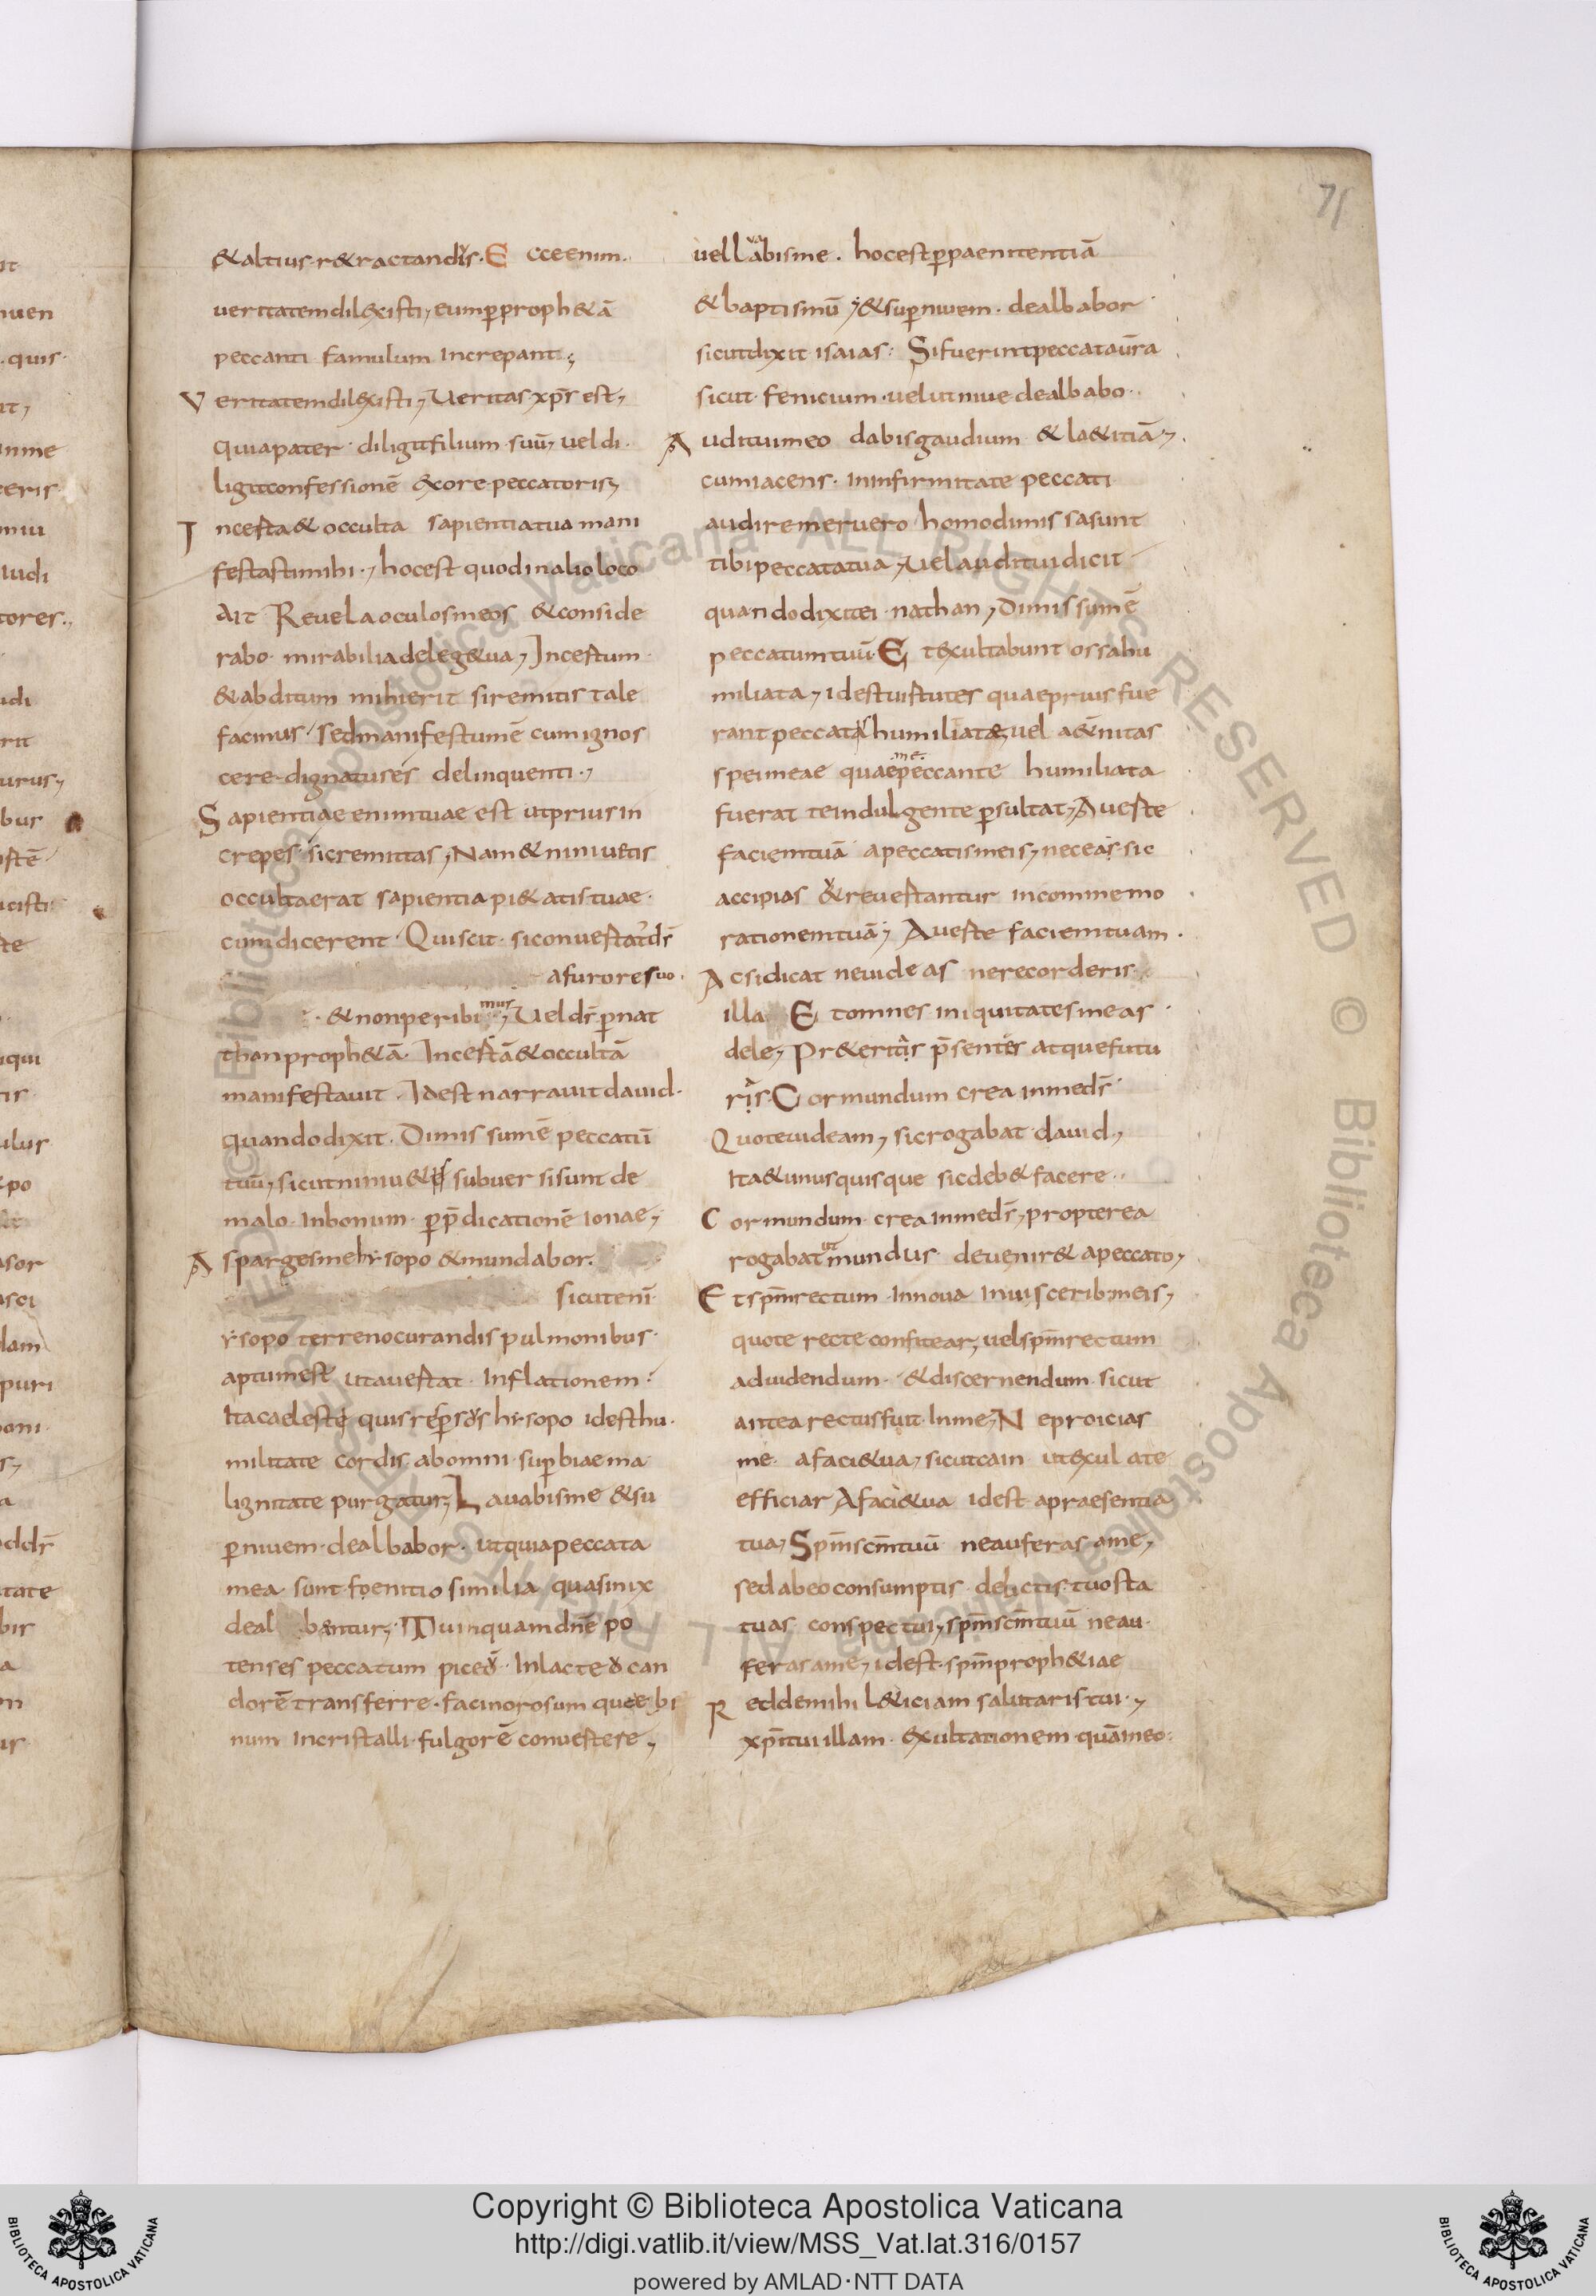 71
&altius r&ractandis. Ecce enim.
ueritatem dilexisti, eum ꝑ proph&ā
peccanti famulum increpant;
Veritatem dilexisti, Ueritas xp̄s est,
quia pater diligit filium suū, uel di
ligit confessionē ex ore peccatoris,
Incerta & occulta sapientia tua mani
festasti mihi, hoc est quod in alio loco
ait Reuela oculos meos & conside
rabo mirabilia de leg& tua, Incertum
& abditum mihi erit si remitis tale
facinus, sed manifestum ē cum ignos
cere dignatus es delinquenti.,
Sapientiae enim tuae est ut prius in
crepes sic remittas, Nam & niniuetis
occulta erat sapientia pi&atis tuae.
cum dicerent Quis scit si conuertat d̄s
a furore suo.
& non peribimus, Uel d̄s ꝑ nat
than proph&ā. Incertā & occultā
manifestauit. Id est narrauit dauid.
quando dixit. Dimissum ē peccatū
tuū, sicut niniu& subuersi sunt de
malo in bonum ꝑ p̄dicationē ionae,
Asparges me hysopo & mundabor.
sicut eni
ysopo terreno curandis pulmonibus
aptum est ut auertat inflationem.
Ita caeleste quis reꝑsus hysopo id est hu
militate cordis ab omni suꝑbiae ma
lignitate purgatur, Lauabis me & su
ꝑ niuem dealbabor. ut quia peccata
mea sunt foenitio similia quasi nix
dealbantur, Tu inquam dn̄e po
tens es peccatum in lacteū can
dorē transferre. facinorosum que
num in cristalli fulgorē conuertere,
uel lauabis me. hoc est ꝑ paenitentiā
& baptismū, & suꝑ niuem. dealbabor
sicut dixit isaias: Si fuerint peccata ūra
sicut fenicium uelut niue dealbabo.
Auditui meo dabis gaudium & la&itiā,
cum iacens in infirmitate peccati
audire meruero homo dimissa sunt
tibi peccata tua, Uel auditui dicit
quando dixit ei nathan, Dimissum ē
peccatum tuū. Et exultabunt ossa hu
miliata, id est uirtutes quae prius fue
rant peccatis humiliatae, uel a&ernitas
spei meae quae me peccante humiliata
fuerat te indulgente ꝑsultat, Auerte
faciem tuā a peccatis meis, nec eas sic
accipias ut reuertantur in commemo
rationem tuā, Auerte faciem tuam.
Ac si dicat ne uideas ne recorderis
illa Et omnes iniquitates meas
dele, Pr&eritas p̄sentes atque futu
ras. Cor mundum crea in me d̄s
Quo te uideam, sic rogabat dauid,
Ita & unusquisque sic deb& facere..
Cor mundum crea in me d̄s, propterea
rogabat ut mundus deuenir& a peccato,
Et sp̄m rectum innoua in uisceribus meis,
quo te recte confitear, uel sp̄m rectum
ad uidendum & discernendum sicut
antea rectus fuit in me, Ne proicias
me a faci& tua, sicut cain ut exul a te
efficiar A faci& tua id est a praesentia
tua, Sp̄m sc̄m tuū ne auferas a me,
sed abeo consumptis delictis tuo sta
tuas conspectui, sp̄m sc̄m tuū ne au
feras a me, id est sp̄m proph&iae
Redde mihi l&iciam salutaris tui,
xp̄i tui illam exultationem quā in eo
Copyright © Biblioteca Apostolica Vaticana
http://digi.vatlib.it/view/MSS_Vat.lat.316/0157
powered by AMLAD·NTT DATA